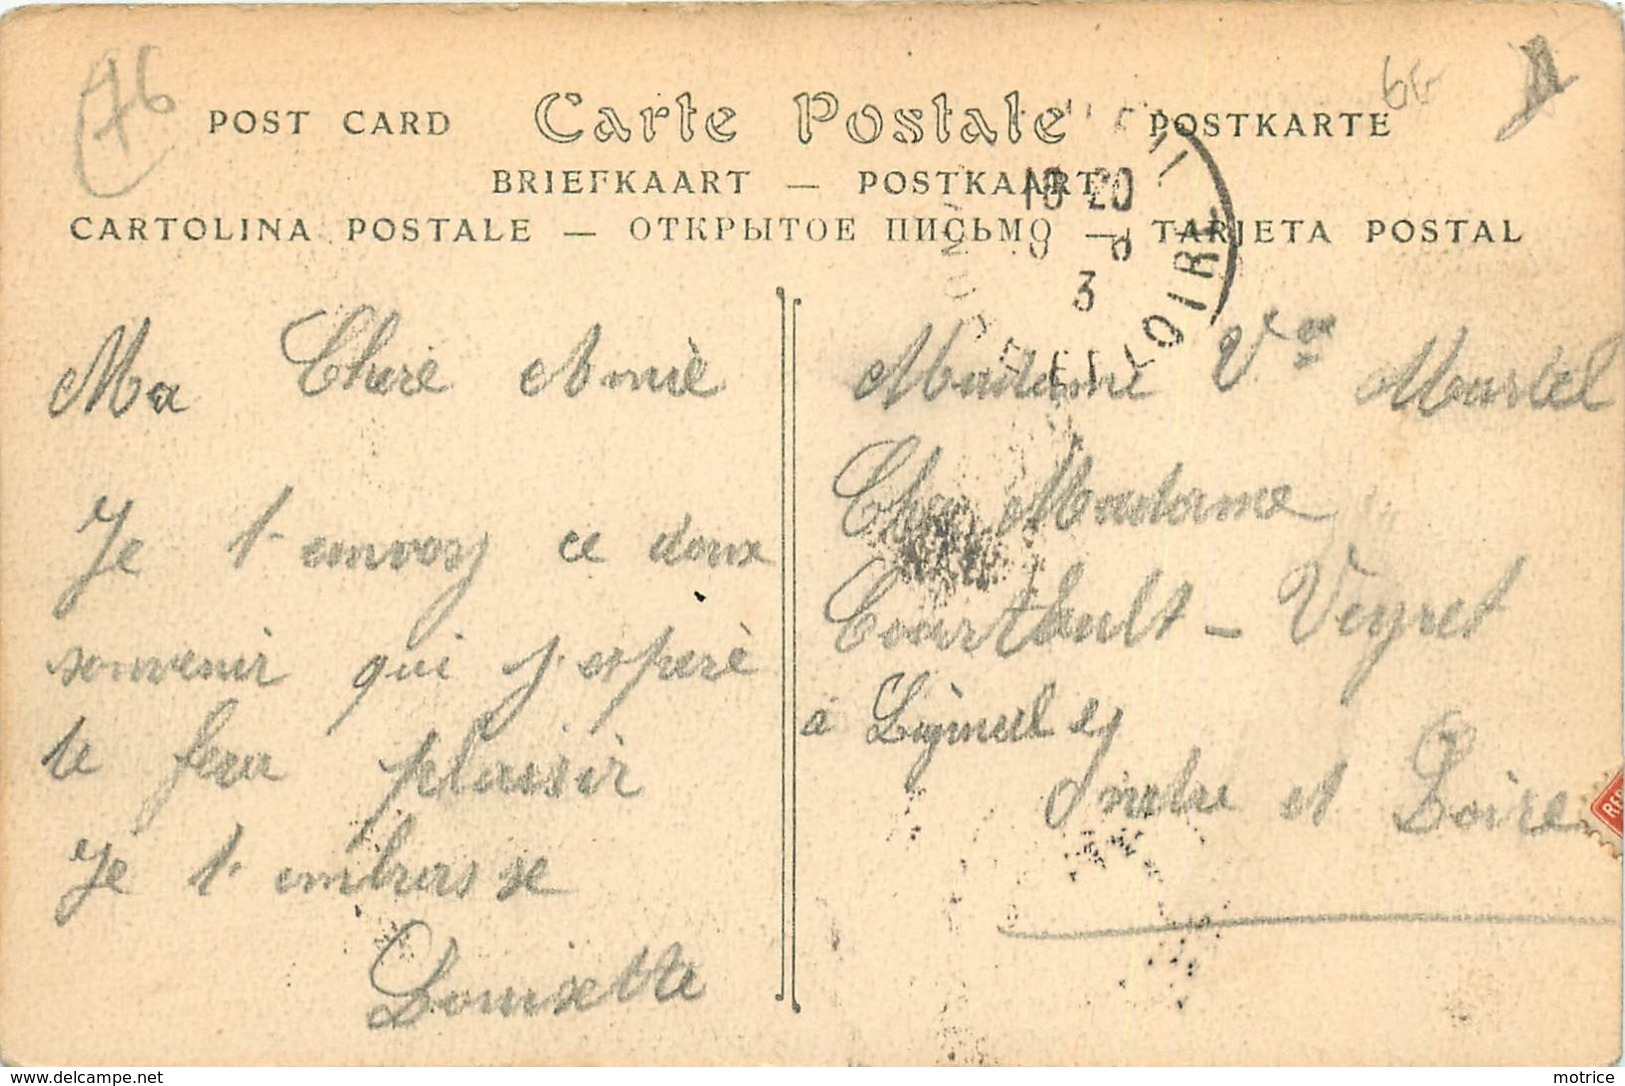 76
6G
POST CARD Carte Postale POSTKARTE
BRIEFKAART — POSTKAART
CARTOLINA POSTALE — ОТКРЫТОЕ ПИСЬМО — TARJETA POSTAL
18 20
3
LOIRE
Ma Chere Amiè
Je t'envoy ce doux
souvenir qui j'esperè
te fera plaisir
Je t'embrasse
Louisette
Madame Vve Martel
Chez Madame
Courtault - Veyret
à Ligueil
Indre et Loire
REP
https://www.delcampe.net
motrice